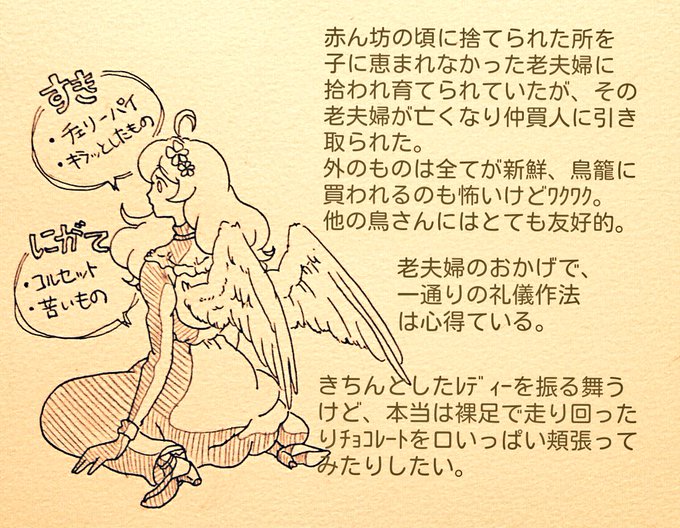 すき
・チェリーパイ
・キラッとしたもの
にがて
・コルセット
・苦いもの
赤ん坊の頃に捨てられた所を
子に恵まれなかった老夫婦に
拾われ育てられていたが、その
老夫婦が亡くなり仲買人に引き
取られた。
外のものは全てが新鮮、鳥籠に
買われるのも怖いけどﾜｸﾜｸ。
他の鳥さんにはとても友好的。
老夫婦のおかげで、
一通りの礼儀作法
は心得ている。
きちんとしたﾚﾃﾞｨｰを振る舞う
けど、本当は裸足で走り回った
りﾁｮｺﾚｰﾄを口いっぱい頬張って
みたりしたい。